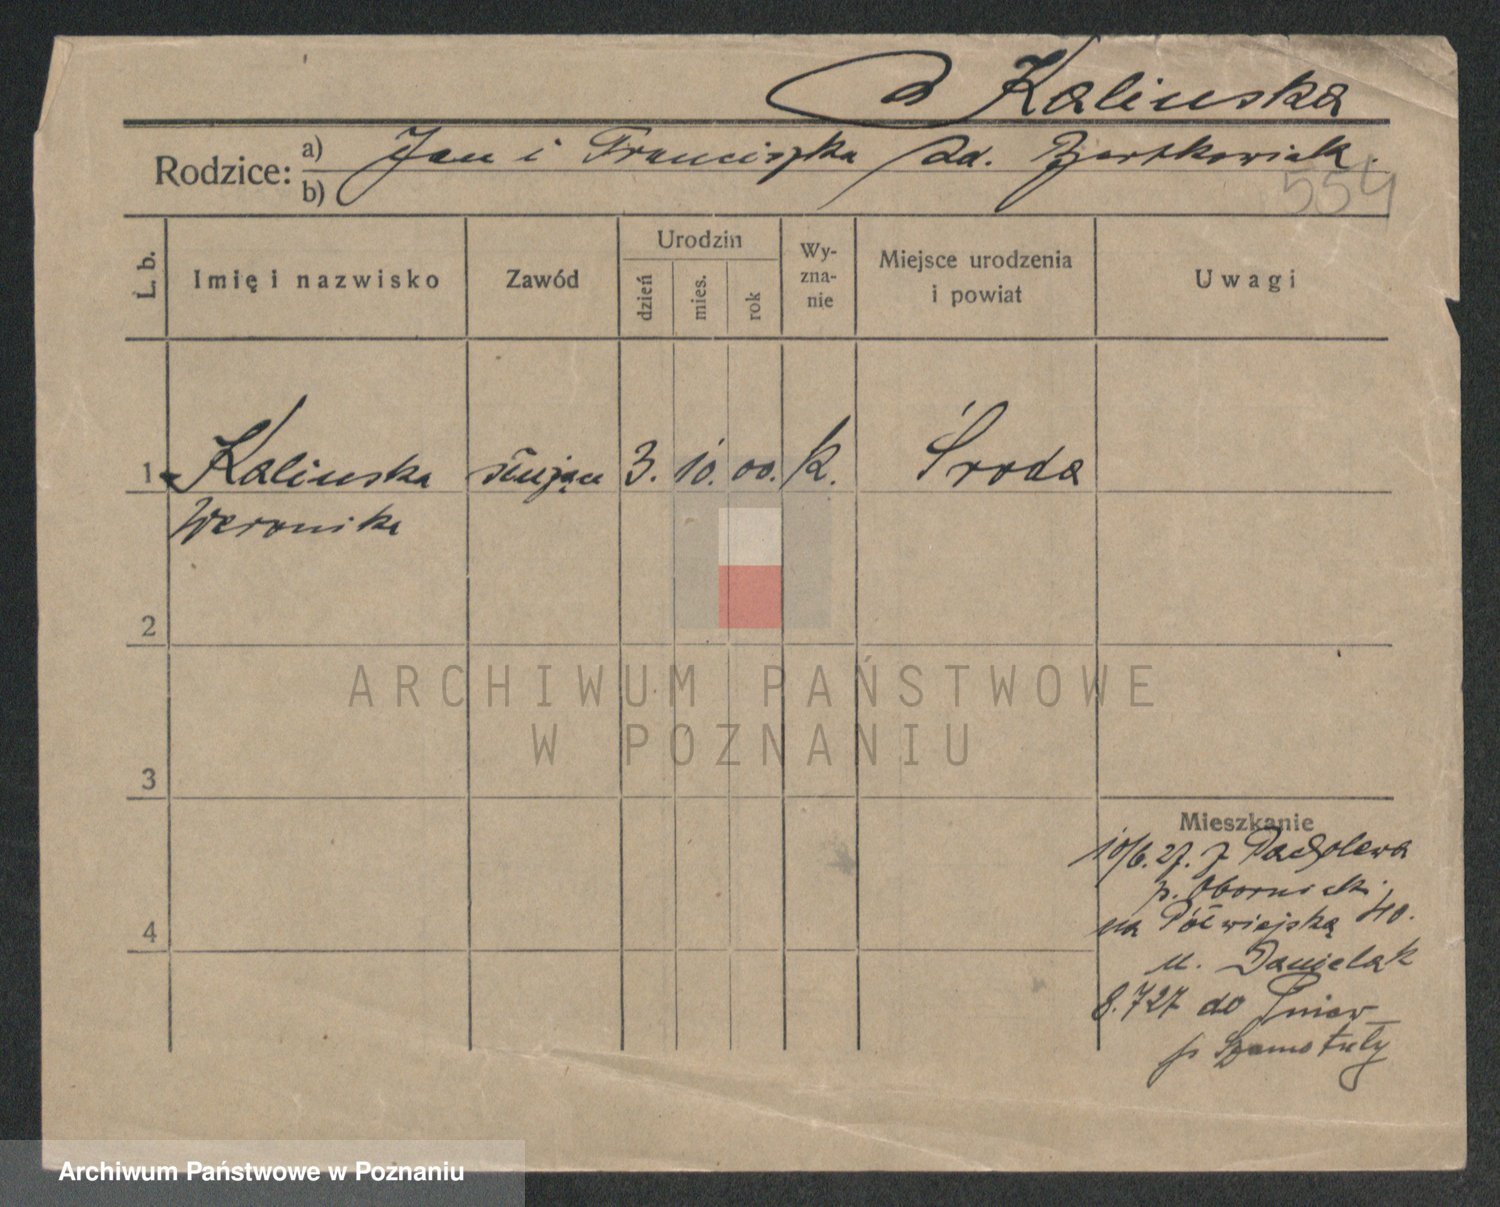 Kalinska
Rodzice: a) Jan i Franciszka
b)
554
L. b.
Imię i nazwisko
Zawód
Urodzin
dzień
mies.
rok
Wy-
zna-
nie
Miejsce urodzenia
i powiat
Uwagi
1 Kalinska służąca 3. 10. 00. k. Środa
Weronika
2
ARCHIWUM PAŃSTWOWE
W POZNANIU
3
Mieszkanie
10/6.27. z
p. Obornicki
na Półwiejską 40.
4
u. Danielak
8.727 do Pniew
p Szamotuły
Archiwum Państwowe w Poznaniu